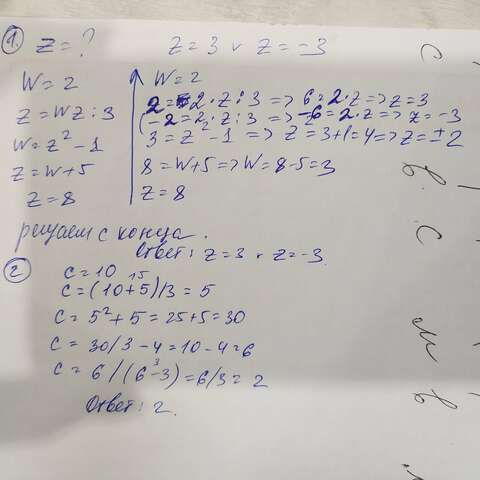 1. z = ?   z = 3 ∨ z = -3
W = 2
z = wz : 3
W = z² - 1
z = w + 5
z = 8
W = 2
2 = 2 · z : 3 => 6 = 2 · z => z = 3
(-2 = 2 · z : 3 => -6 = 2 · z => z = -3
3 = z² - 1 => z² = 3 + 1 = 4 => z = ±2
8 = w + 5 => w = 8 - 5 = 3
z = 8
решали с конца.
Ответ: z = 3 ∨ z = -3
2
c = 10
c = (10 + 5) / 3 = 5
15
c = 5² + 5 = 25 + 5 = 30
c = 30 / 3 - 4 = 10 - 4 = 6
c = 6 / (6 - 3) = 6 / 3 = 2
3
Ответ: 2.